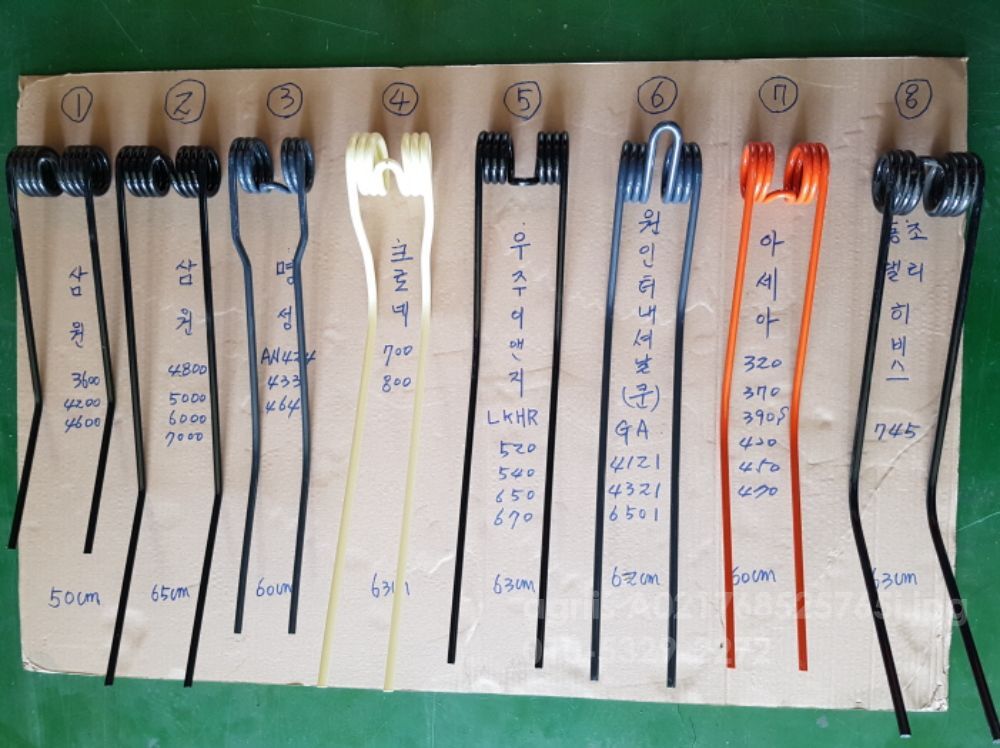 ① ② ③ ④ ⑤ ⑥ ⑦ ⑧
삼원
3600
4200
4600
50cm
삼원
4800
5000
6000
7000
65cm
명성
AN424
433
464
60cm
크로네
700
800
우주이앤지
LKHR
520
540
650
670
63cm
원인터내셔날
(쿤)
GA
4121
4321
6501
62cm
아세아
320
370
390
420
450
470
60cm
동조
델리
히비스
745
63cm